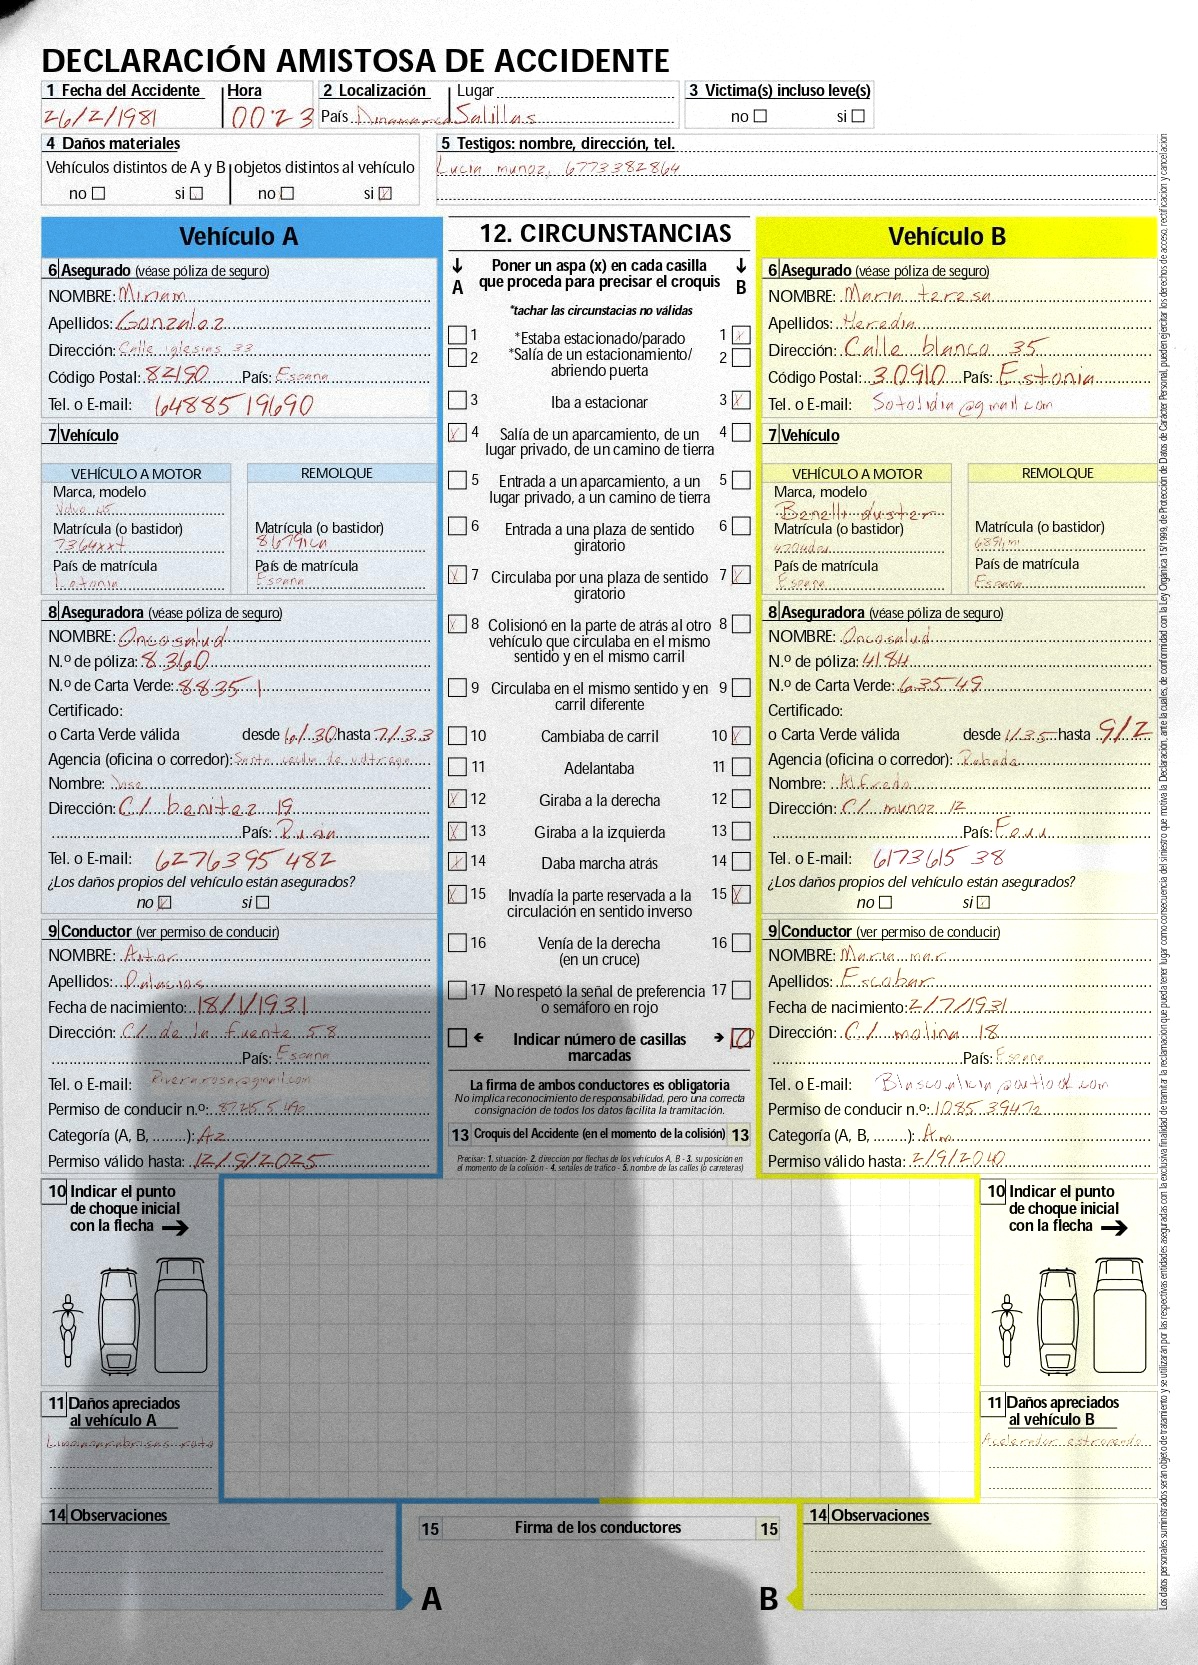 DECLARACIÓN AMISTOSA DE ACCIDENTE
1 Fecha del Accidente Hora 2 Localización Lugar 3 Victima(s) incluso leve(s)
26/2/1981 00:23 País Dinamarca Salillas no si
4 Daños materiales 5 Testigos: nombre, dirección, tel.
Vehículos distintos de A y B objetos distintos al vehículo Lucia munoz, 6773382864
no si no si
Vehículo A
6 Asegurado (véase póliza de seguro)
NOMBRE: Miriam
Apellidos: Gonzalez
Dirección: Calle iglesias 33
Código Postal: 82190 País: Espana
Tel. o E-mail: 6488519690
7 Vehículo
VEHÍCULO A MOTOR REMOLQUE
Marca, modelo
Volvo
Matrícula (o bastidor) Matrícula (o bastidor)
7364xxt
País de matrícula País de matrícula
Letonia Espana
8 Aseguradora (véase póliza de seguro)
NOMBRE: Oncosalud
N.º de póliza: 8360
N.º de Carta Verde: 88351
Certificado:
o Carta Verde válida desde 6/30 hasta 7/33
Agencia (oficina o corredor): Santa de
Nombre: Jose
Dirección: C/ benitez 19
País: Rusia
Tel. o E-mail: 6276395482
¿Los daños propios del vehículo están asegurados?
no si
9 Conductor (ver permiso de conducir)
NOMBRE: Aitor
Apellidos: Palacios
Fecha de nacimiento: 18/1/1931
Dirección: C/ de la fuente 58
País: Espana
Tel. o E-mail: Riverarosa@gmail.com
Permiso de conducir n.º:
Categoría (A, B, ........): A2
Permiso válido hasta: 12/9/2025
12. CIRCUNSTANCIAS
Poner un aspa (x) en cada casilla
A que proceda para precisar el croquis B
*tachar las circunstacias no válidas
1 *Estaba estacionado/parado 1
2 *Salía de un estacionamiento/ 2
abriendo puerta
3 Iba a estacionar 3
4 Salía de un aparcamiento, de un 4
lugar privado, de un camino de tierra
5 Entrada a un aparcamiento, a un 5
lugar privado, a un camino de tierra
6 Entrada a una plaza de sentido 6
giratorio
7 Circulaba por una plaza de sentido 7
giratorio
8 Colisionó en la parte de atrás al otro 8
vehículo que circulaba en el mismo
sentido y en el mismo carril
9 Circulaba en el mismo sentido y en 9
carril diferente
10 Cambiaba de carril 10
11 Adelantaba 11
12 Giraba a la derecha 12
13 Giraba a la izquierda 13
14 Daba marcha atrás 14
15 Invadía la parte reservada a la 15
circulación en sentido inverso
16 Venía de la derecha 16
(en un cruce)
17 No respetó la señal de preferencia 17
o semáforo en rojo
Indicar número de casillas 10
marcadas
La firma de ambos conductores es obligatoria
No implica reconocimiento de responsabilidad, pero una correcta
consignación de todos los datos facilita la tramitación.
13 Croquis del Accidente (en el momento de la colisión) 13
Precisar: 1. situación- 2. dirección por flechas de los vehículos A, B - 3. su posición en
el momento de la colisión - 4. señales de tráfico - 5. nombre de las calles (o carreteras)
Vehículo B
6 Asegurado (véase póliza de seguro)
NOMBRE: Maria teresa
Apellidos: Heredia
Dirección: Calle blanco 35
Código Postal: 30910 País: Estonia
Tel. o E-mail: Sotolidia@gmail.com
7 Vehículo
VEHÍCULO A MOTOR REMOLQUE
Marca, modelo
Benelli duster
Matrícula (o bastidor) Matrícula (o bastidor)
País de matrícula País de matrícula
Espana Espana
8 Aseguradora (véase póliza de seguro)
NOMBRE: Oncosalud
N.º de póliza: 4184
N.º de Carta Verde: 63549
Certificado:
o Carta Verde válida desde 1/35 hasta 9/2
Agencia (oficina o corredor): Rabada
Nombre: Alfredo
Dirección: C/ munoz 12
País: Peru
Tel. o E-mail: 617361538
¿Los daños propios del vehículo están asegurados?
no si
9 Conductor (ver permiso de conducir)
NOMBRE: Maria mar
Apellidos: Escobar
Fecha de nacimiento: 2/7/1931
Dirección: C/ molina 18
País: Espana
Tel. o E-mail: Blascoalicia@outlook.com
Permiso de conducir n.º:
Categoría (A, B, ........): Am
Permiso válido hasta: 2/9/2040
10 Indicar el punto
de choque inicial
con la flecha
11 Daños apreciados
al vehículo A
10 Indicar el punto
de choque inicial
con la flecha
11 Daños apreciados
al vehículo B
Acelerador estropeado
14 Observaciones
15 Firma de los conductores 15
A B
14 Observaciones
Los datos personales suministrados serán objeto de tratamiento y se utilizarán por las respectivas entidades aseguradas con la exclusiva finalidad de tramitar la reclamación que pueda tener lugar como consecuencia del siniestro que motiva la Declaración, ante la cuales, de conformidad con la Ley Orgánica 15/1999, de Protección de Datos de Carácter Personal, pueden ejercitar los derechos de acceso, rectificación y cancelación